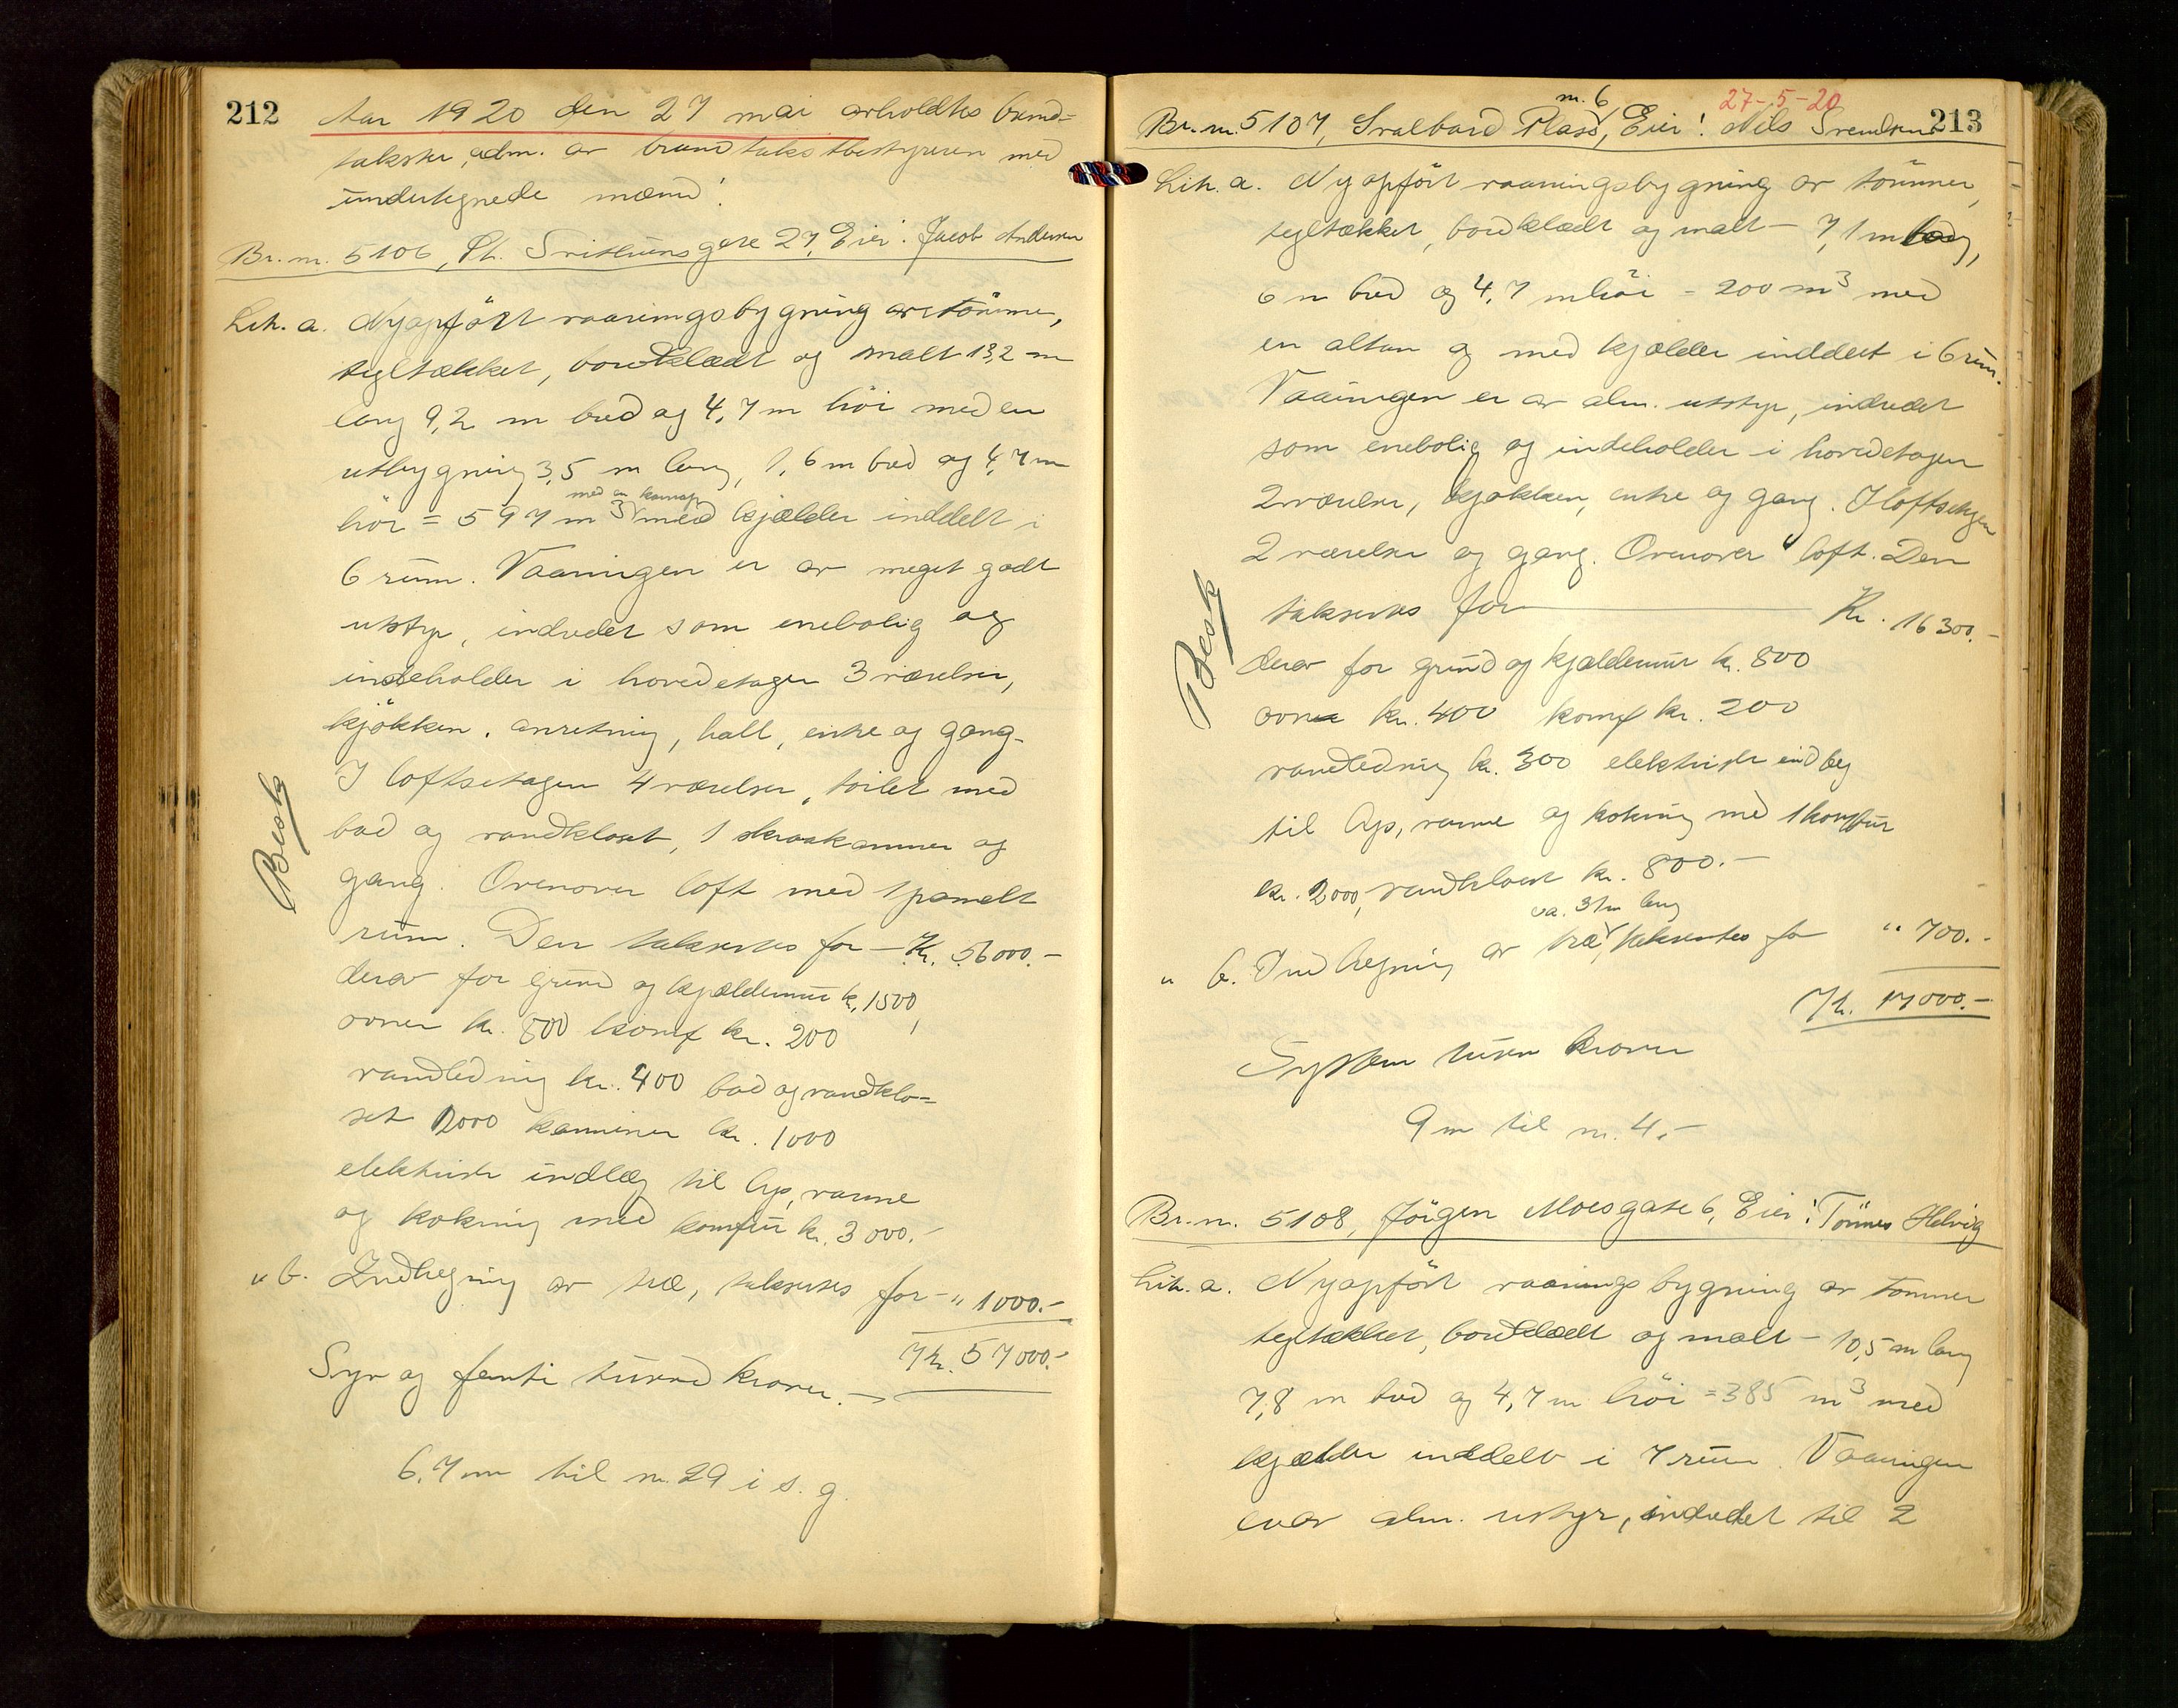 212
Aar 1920 den 27 mai avholdtes brand-
takster, adm. av brandtakstbestyreren med
undertegnede mænd:
Br. nr. 5106, St. Svithunsgate 27, Eier: Jacob Andersen
Lit. a. Nyopført vaaningsbygning av tømmer,
tegltækket, bordklædt og malt 13,2 m
lang 9,2 m bred og 4,7 m høi med en
utbygning 3,5 m lang, 1,6 m bred og 4,7 m
med en karnap
høi = 597 m3 med kjælder inddelt i
6 rum. Vaaningen er av meget godt
utstyr, indredet som enebolig og
indeholder i hovedetagen 3 værelser,
kjøkken, anretning, hall, entre og gang.
I loftsetagen 4 værelser, toilet med
bad og vandkloset, 1 skraakammer og
Besk
gang. Ovenover loft med 1 panelt
rum. Den takseres for – Kr. 56000.–
derav for grund og kjældermur kr. 1500,
ovner kr. 800 komf kr. 200
vandledning kr. 400 bad og vandklo-
set 2000 kaminer kr. 1000
elektrisk indlæg til lys, varme
og kokning med komfur kr. 3000.–
" b. Indhegning av træ, takseres for – " 1000.–
Kr. 57000.–
Syv og femti tusend kroner. –
6,7 m til nr. 29 i s. g.
213
27-5-20
nr. 6
Br. nr. 5107, Svalbard Plass, Eier: Nils Svendsen
Lit. a. Nyopført vaaningsbygning av tømmer,
tegltækket, bordklædt og malt – 7,1 m lang,
6 m bred og 4,7 m høi = 200 m3 med
en altan og med kjælder inddelt i 6 rum.
Vaaningen er av alm. utstyr, indredet
som enebolig og indeholder i hovedetagen
2 værelser, kjøkken, entre og gang. I loftsetagen
2 værelser og gang. Ovenover loft. Den
takseres for Kr. 16300.–
Besk
derav for grund og kjældermur kr. 800
ovne kr. 400 komf kr. 200
vandledning kr. 300 elektrisk indlæg
til lys, varme og kokning med 1 komfur
kr. 2000, vandkloset kr. 800.–
ca. 31 m lang
" b. Indhegning av træ, takseres for " 700.–
Kr. 17000.–
Sytten tusen kroner
9 m til nr. 4.–
Br. nr. 5108, Jörgen Moesgate 6, Eier: Tönnes Helvig
Lit. a. Nyopført vaaningsbygning av tømmer
tegltækket, bordklædt og malt – 10,5 m lang
7,8 m bred og 4,7 m høi = 385 m3 med
kjælder inddelt i 7 rum. Vaaningen
er av alm. utstyr, indredet til 2